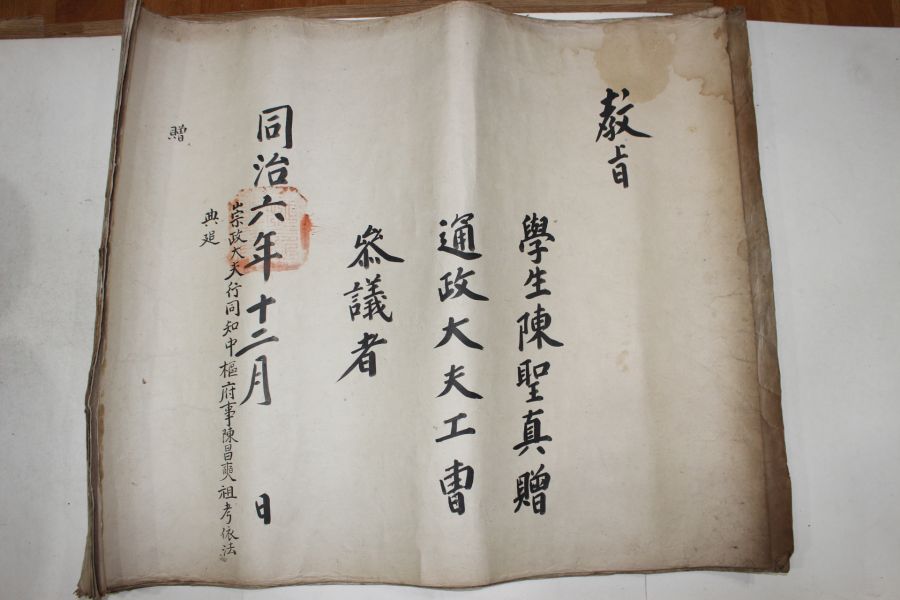 敎旨
學生陳聖真贈
通政大夫工曹
參議者
同治六年十二月 日
崇政大夫行同知中樞府事陳昌奭祖考依法
典追
贈